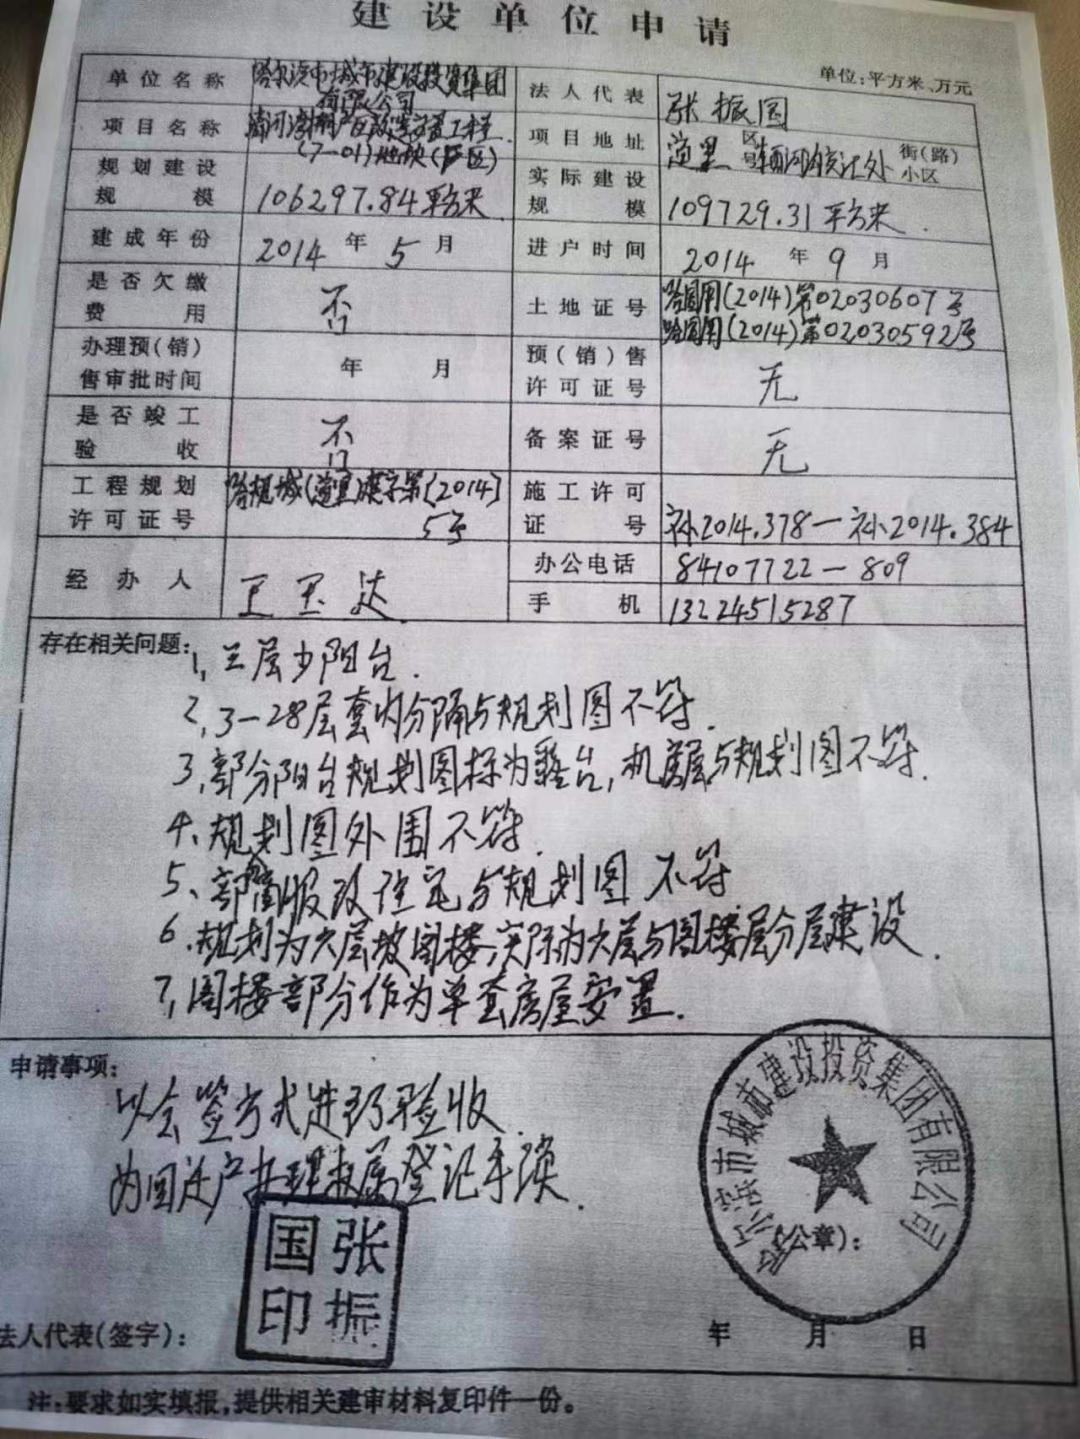 建设单位申请
单位:平方米、万元
单位名称 哈尔滨市城市建设投资集团有限公司 法人代表 张振国
项目名称 (7-01)地块( 区) 项目地址 道里区 街(路)号 小区
规划建设规模 106297.84平方米 实际建设规模 109729.31平方米.
建成年份 2014年5月 进户时间 2014年9月
是否欠缴费用 否 土地证号 哈国用(2014)第02030607号
哈国用(2014)第02030592号
办理预(销)售审批时间 年 月 预(销)售许可证号 无
是否竣工验收 否 备案证号 无
工程规划许可证号 哈规城(道里)建字第[2014]5号 施工许可证号 补2014.378—补2014.384
经办人 王玉达 办公电话 84107722—809
手机 13224515287
存在相关问题:
1,三层少阳台.
2,3-28层套内分隔与规划图不符.
3,部分阳台规划图标为露台,机房层与规划图不符.
4、规划图外围不符.
5、部 改住宅与规划图不符
6.规划为六层坡阁楼,实际为六层与阁楼层分层建设.
7,阁楼部分作为单套房屋安置.
申请事项:
以会签方式进行验收
为回迁户办理权属登记手续.
哈尔滨市城市建设投资集团有限公司
(公章):
张振国印
法人代表(签字):
年 月 日
注:要求如实填报,提供相关建审材料复印件一份。